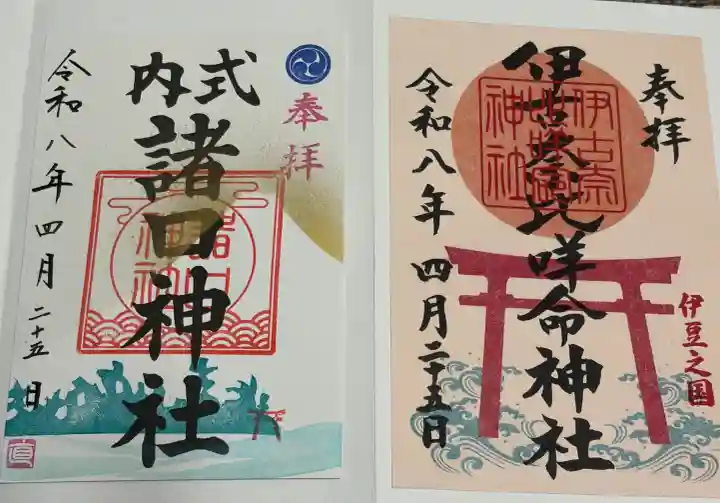 奉拝
式内
諸口神社
諸口神社
令和八年四月二十五日
奉拝
伊古奈比咩命神社
伊古奈比咩命神社
伊豆之国
令和八年四月二十五日